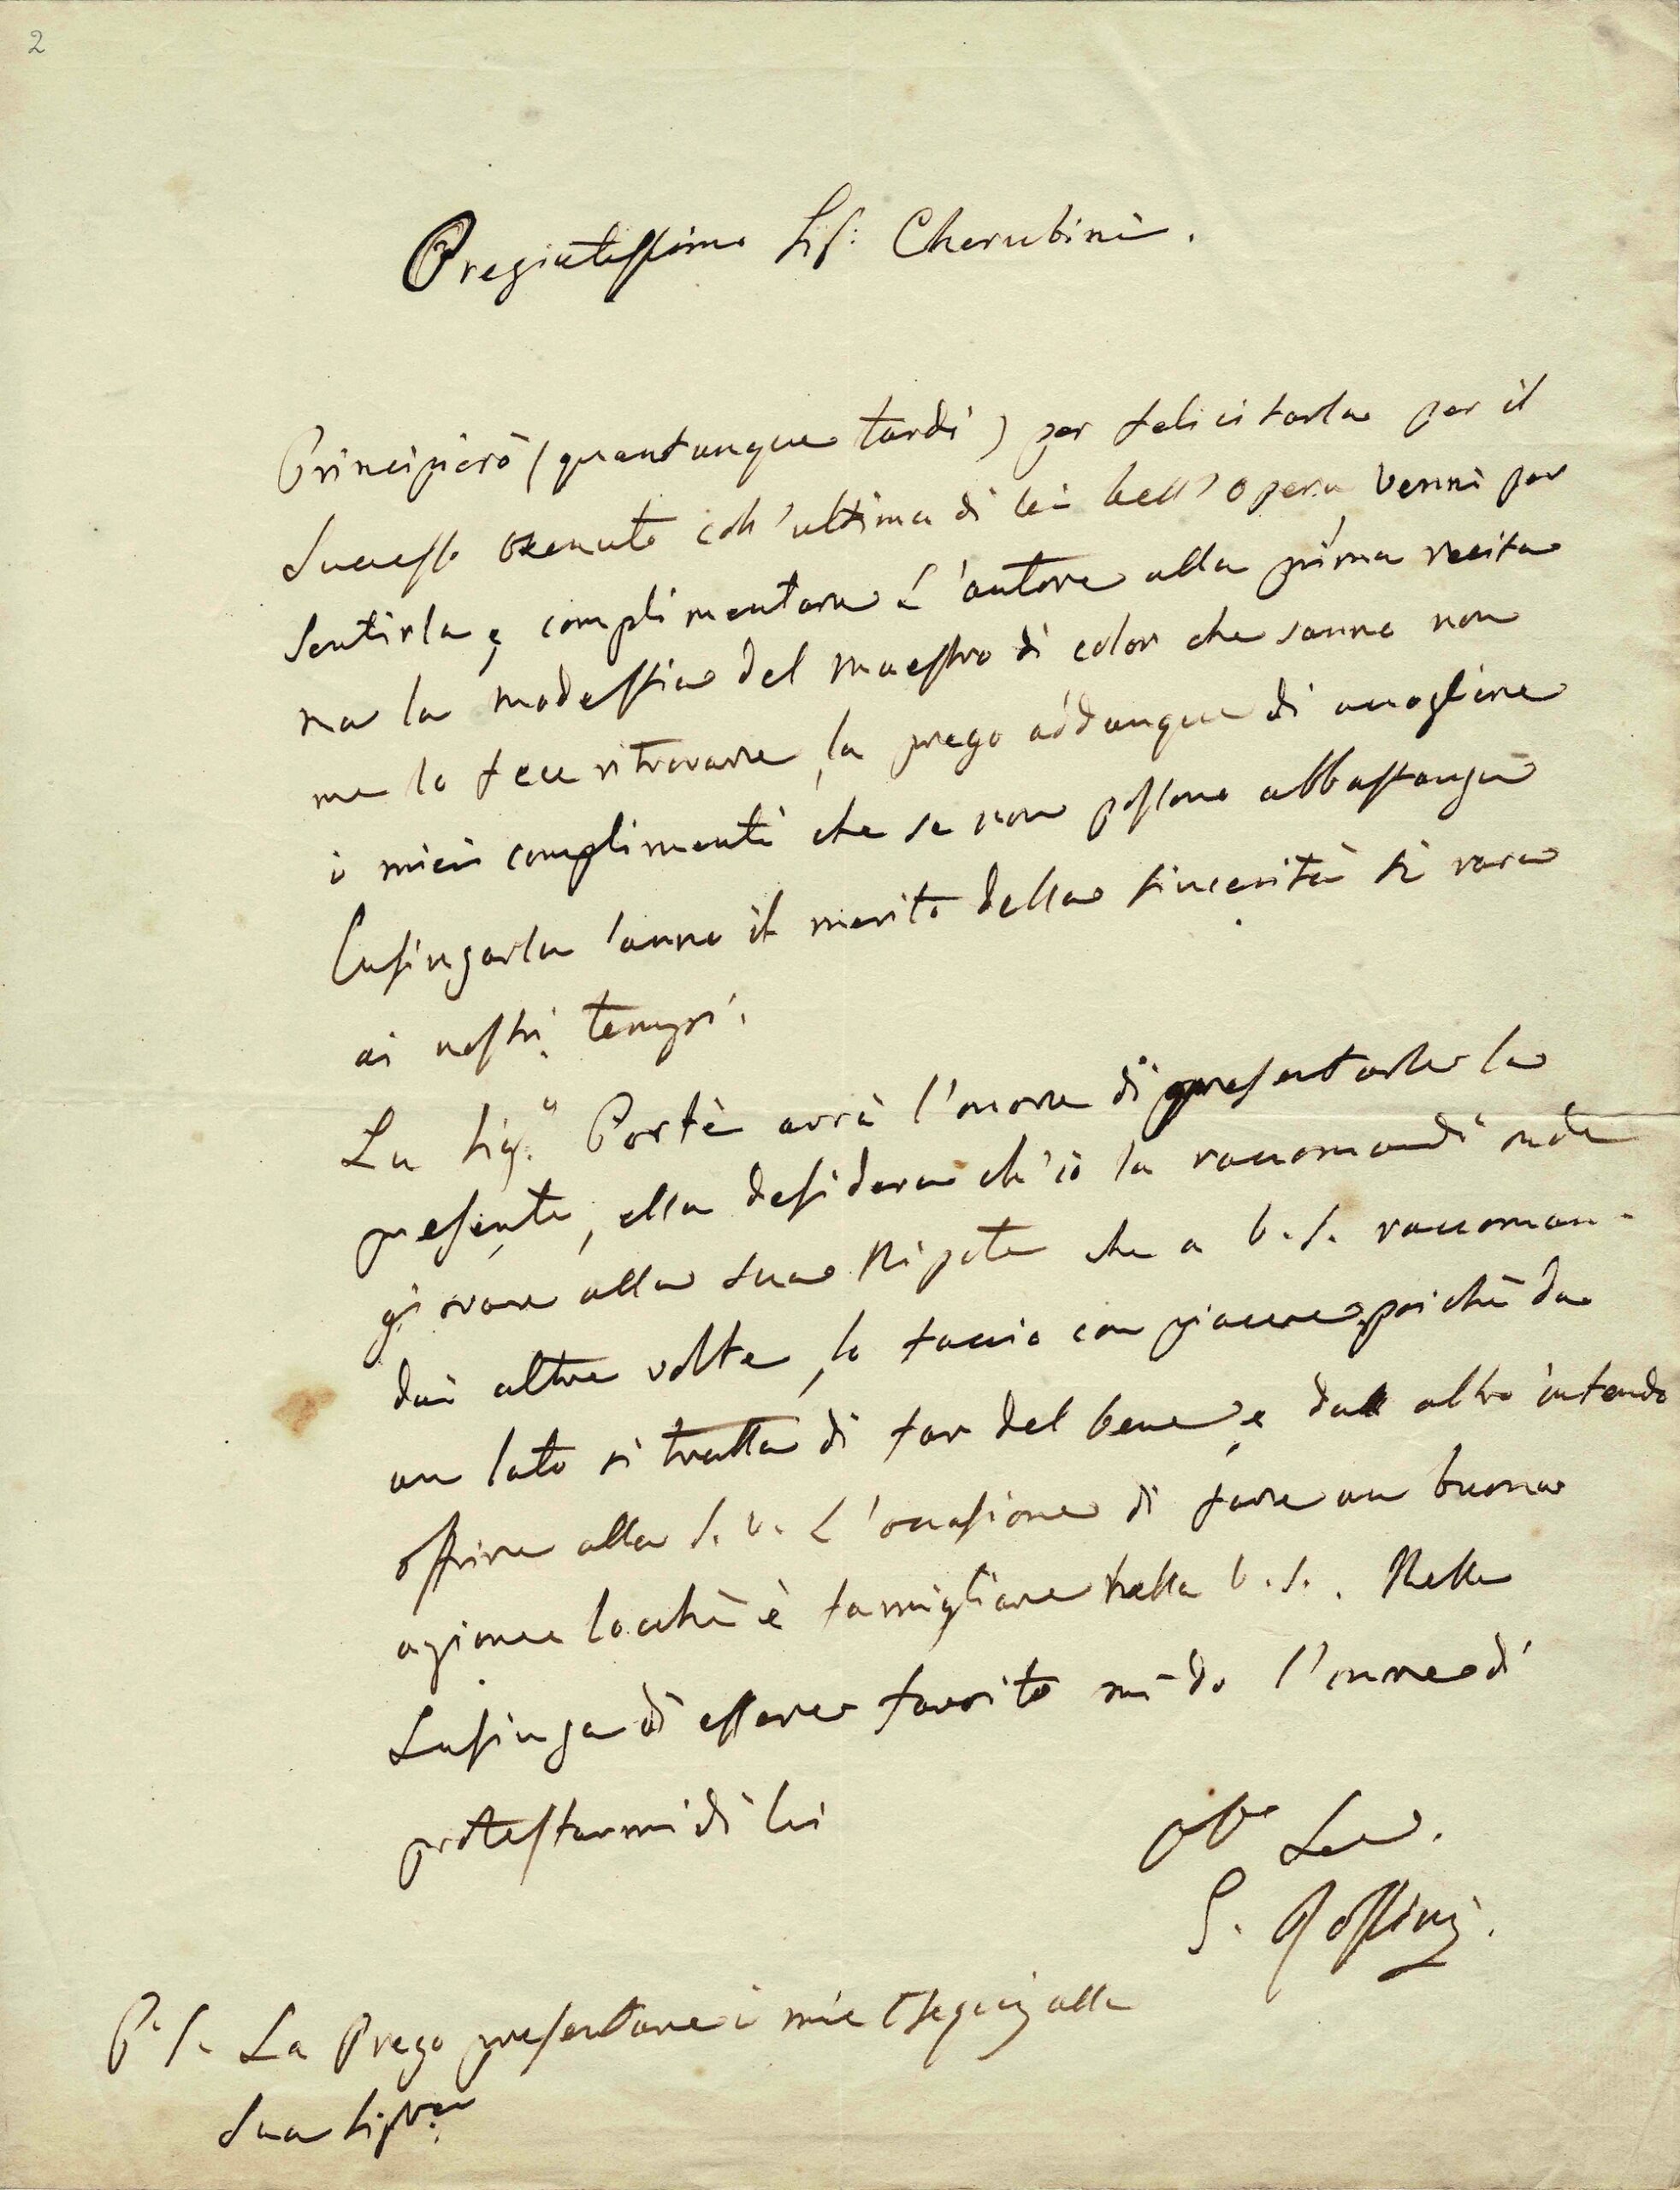 2
Pregiatissimo Sig: Cherubini.
Principierò (quantunque tardi) per felicitarla per il
Successo ottenuto coll'ultima di lei bell'opera venni per
Sentirla, e complimentare L'autore alla prima recita
ma la modestia del maestro di color che sanno non
me lo fece ritrovare, la prego addunque di accogliere
i miei complimenti che se non possono abbastanza
Lusingarla anno il merito della sincerità sì rara
ai nostri tempi.
La Sig.a Portè avrà l'onore di presentarle la
presente, ella desidera ch'io la raccomandi onde
giovare alla sua Nipote che a V. S. raccoman-
dai altre volte, lo faccio con piacere poichè da
un lato si tratta di far del bene, e dall altro intendo
offrire alla S. V. L'occasione di fare un buona
azione locchè è famigliare nella V. S. Nella
Lusinga di essere favorito mi do l'onore di
protestarmi di lei
G. Rossini.
P. S. La Prego presentare i miei Ossequi alla
Sua Sig.ra